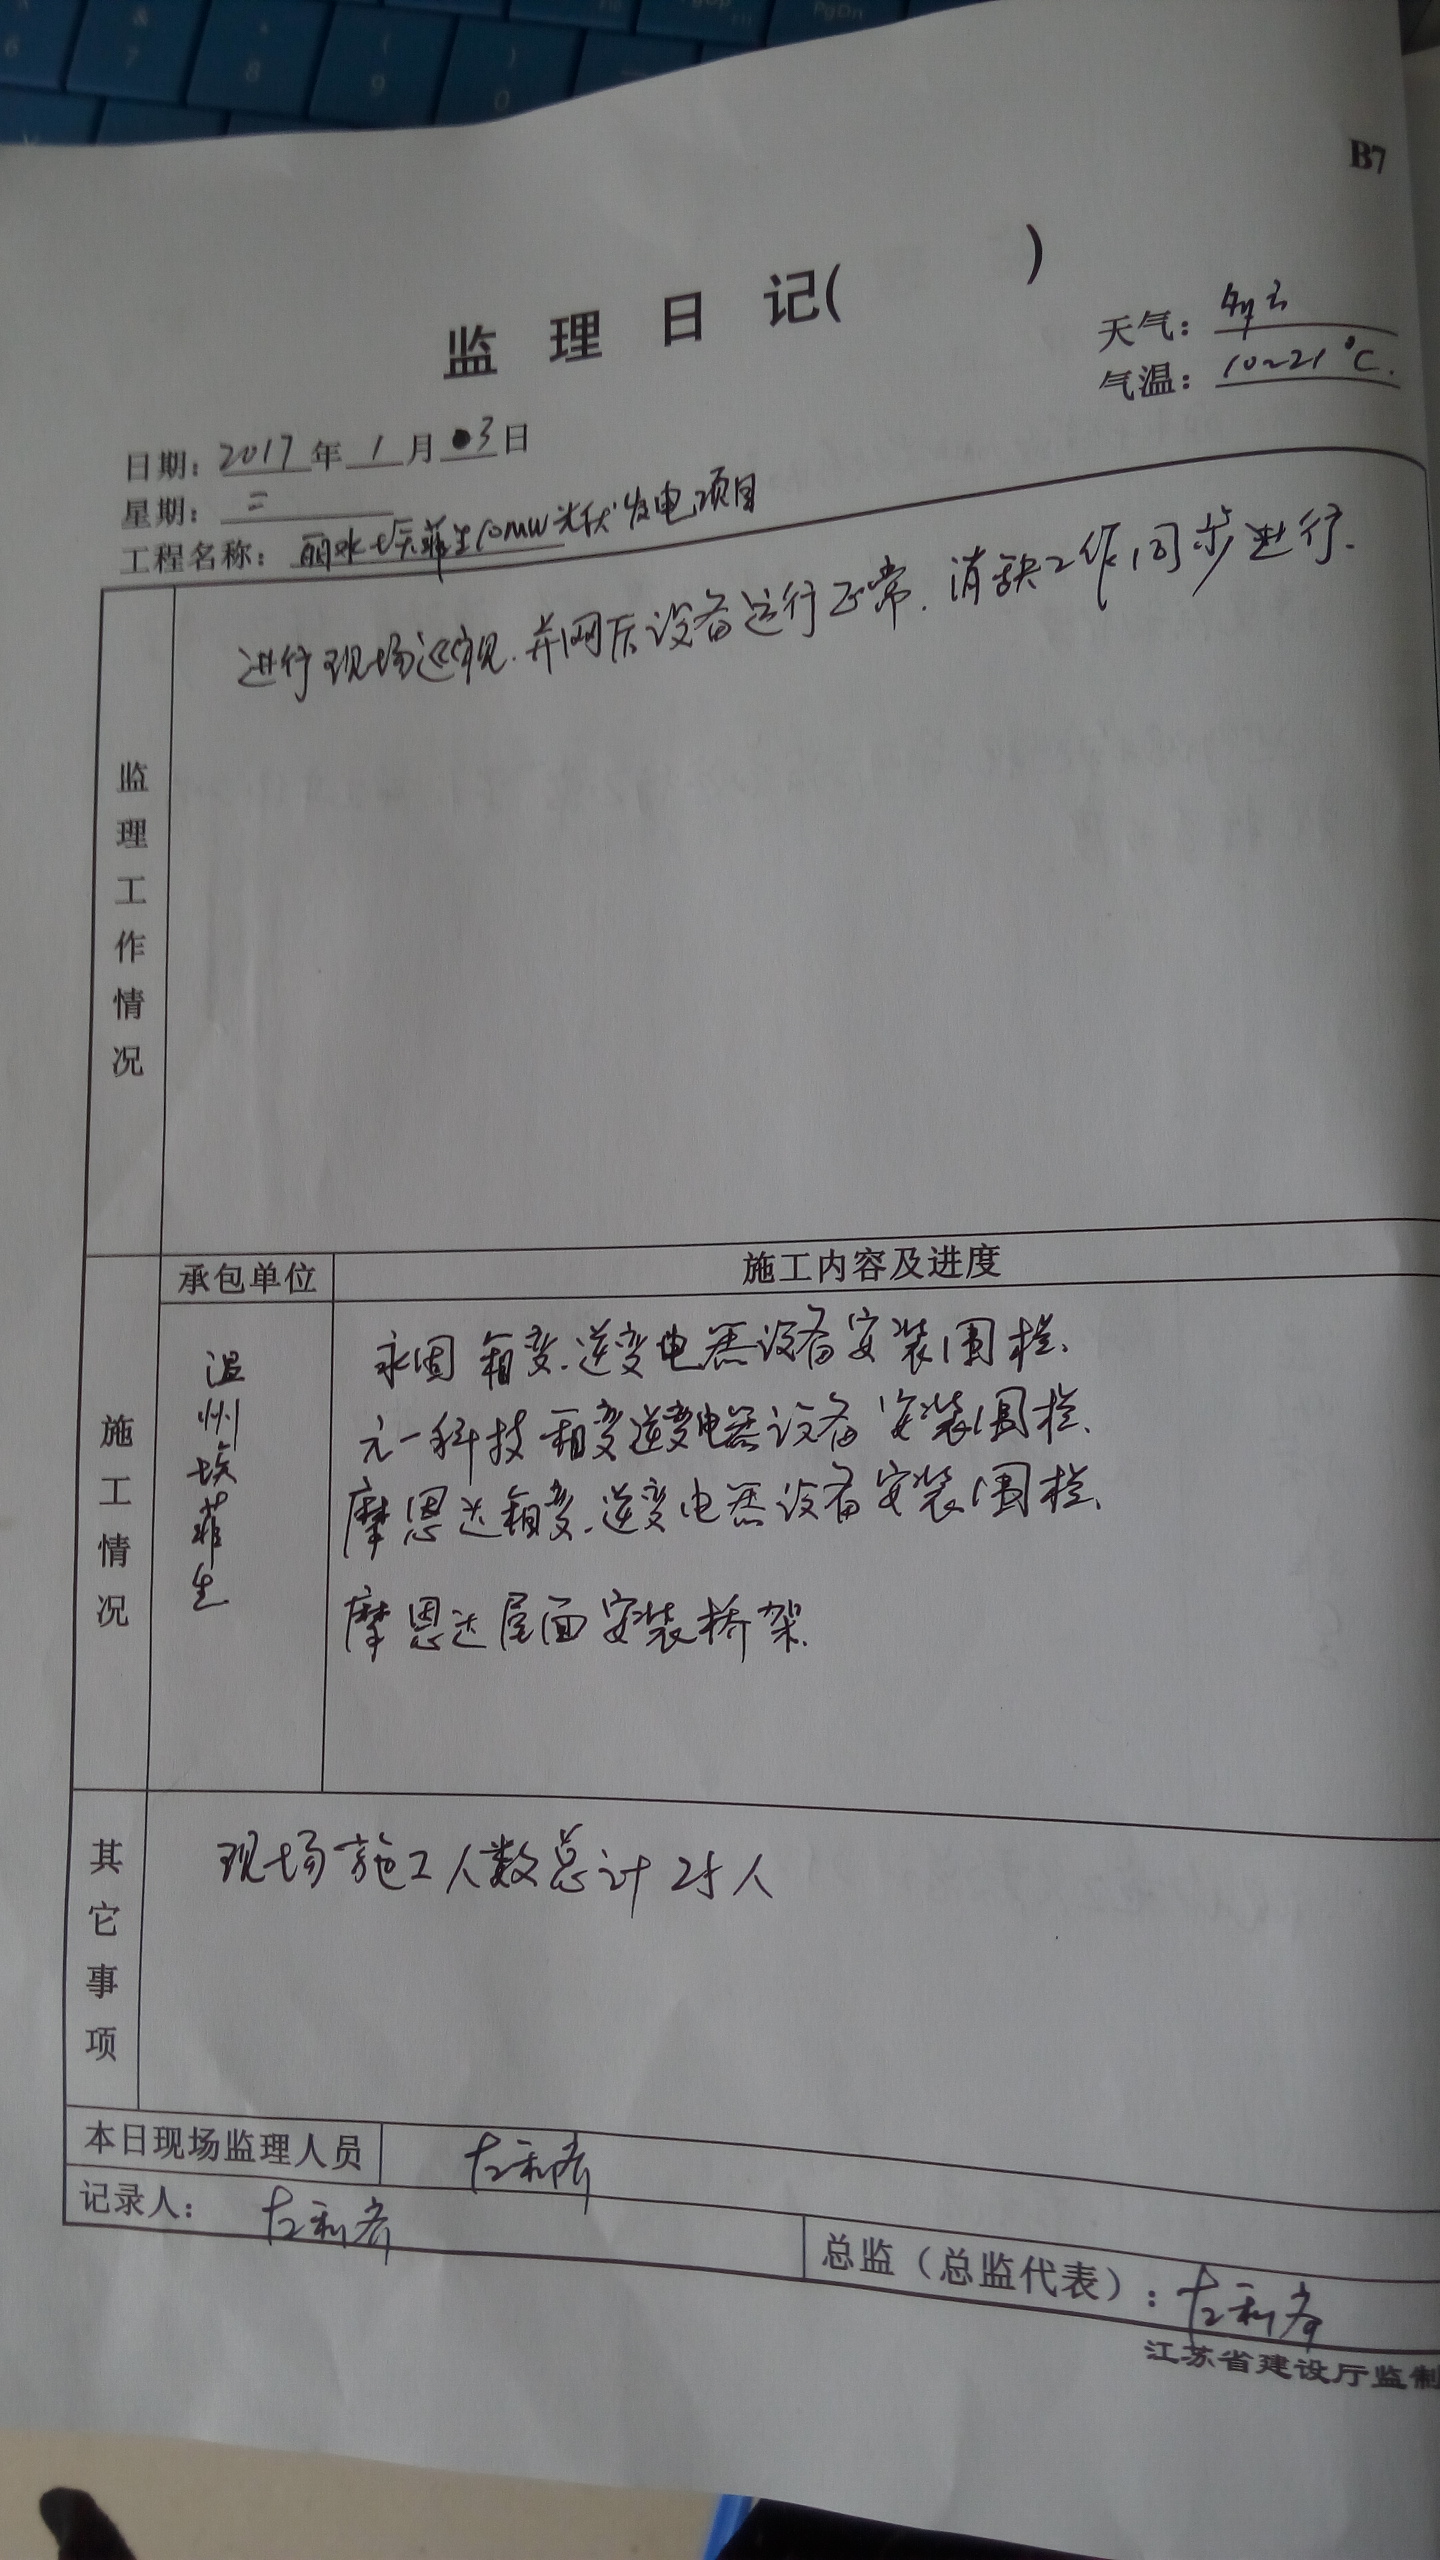 B7
监 理 日 记( )
天气: 多云
气温: 10~21℃.
日期: 2017年1月03日
星期: 二
工程名称: 丽水埃菲生10MW光伏发电项目
进行现场巡视.并网后设备运行正常.消缺工作同步进行.
监理工作情况
承包单位 施工内容及进度
施工情况
温州埃菲生
永固箱变.逆变电器设备安装围栏、
元一科技箱变逆变电器设备安装围栏、
摩恩达箱变.逆变电器设备安装围栏、
摩恩达屋面安装桥架.
其它事项
现场施工人数总计25人
本日现场监理人员
记录人:
总监（总监代表）:
江苏省建设厅监制